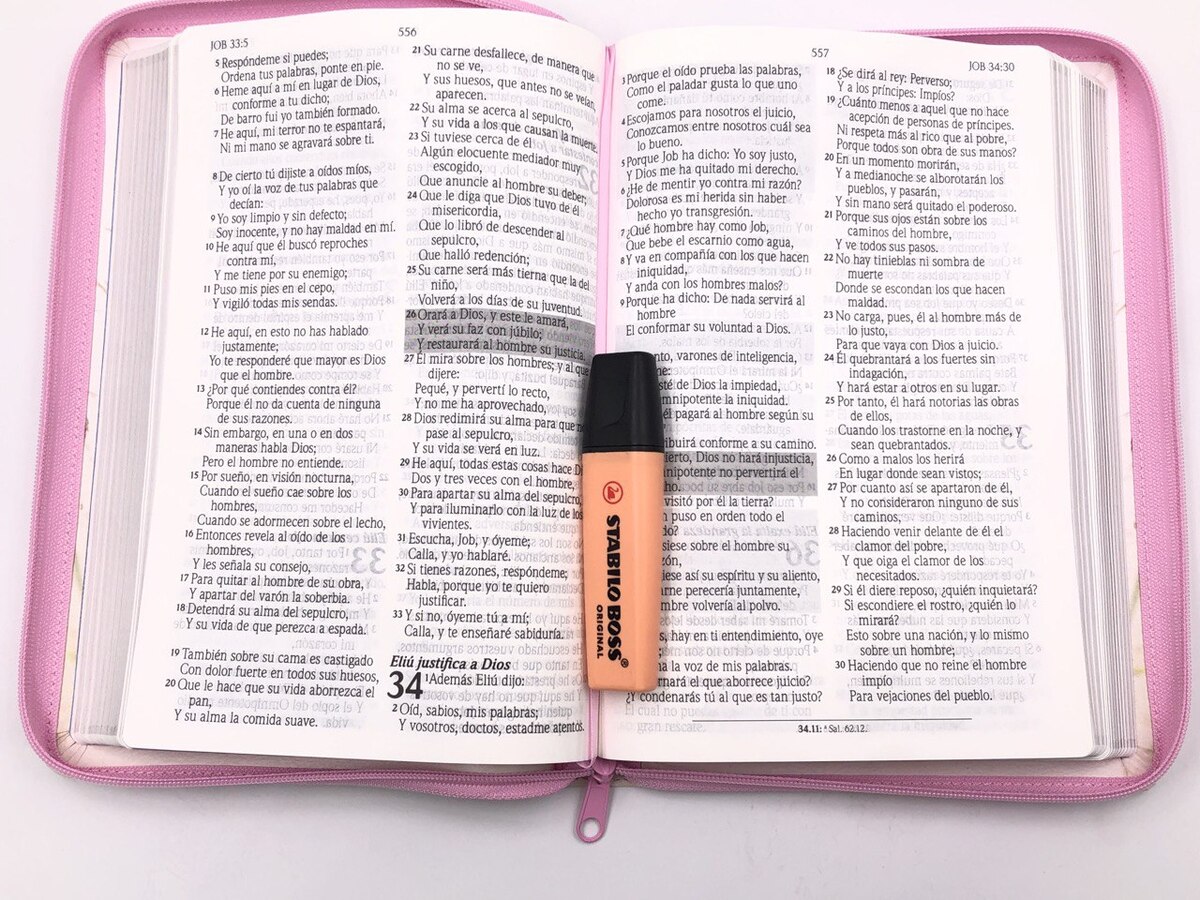 JOB 33:5
556
5 Respóndeme si puedes;
Ordena tus palabras, ponte en pie.
6 Heme aquí a mí en lugar de Dios,
conforme a tu dicho;
De barro fui yo también formado.
7 He aquí, mi terror no te espantará,
Ni mi mano se agravará sobre ti.
8 De cierto tú dijiste a oídos míos,
Y yo oí la voz de tus palabras que
decían:
9 Yo soy limpio y sin defecto;
Soy inocente, y no hay maldad en mí.
10 He aquí que él buscó reproches
contra mí,
Y me tiene por su enemigo;
11 Puso mis pies en el cepo,
Y vigiló todas mis sendas.
12 He aquí, en esto no has hablado
justamente;
Yo te responderé que mayor es Dios
que el hombre.
13 ¿Por qué contiendes contra él?
Porque él no da cuenta de ninguna
de sus razones.
14 Sin embargo, en una o en dos
maneras habla Dios;
Pero el hombre no entiende.
15 Por sueño, en visión nocturna,
Cuando el sueño cae sobre los
hombres,
Cuando se adormecen sobre el lecho,
16 Entonces revela al oído de los
hombres,
Y les señala su consejo,
17 Para quitar al hombre de su obra,
Y apartar del varón la soberbia.
18 Detendrá su alma del sepulcro,
Y su vida de que perezca a espada.
19 También sobre su cama es castigado
Con dolor fuerte en todos sus huesos,
20 Que le hace que su vida aborrezca el
pan,
Y su alma la comida suave.
21 Su carne desfallece, de manera que
no se ve,
Y sus huesos, que antes no se veían,
aparecen.
22 Su alma se acerca al sepulcro,
Y su vida a los que causan la muerte.
23 Si tuviese cerca de él
Algún elocuente mediador muy
escogido,
Que anuncie al hombre su deber;
24 Que le diga que Dios tuvo de él
misericordia,
Que lo libró de descender al
sepulcro,
Que halló redención;
25 Su carne será más tierna que la del
niño,
Volverá a los días de su juventud.
26 Orará a Dios, y este le amará,
Y verá su faz con júbilo;
Y restaurará al hombre su justicia.
27 Él mira sobre los hombres; y al que
dijere:
Pequé, y pervertí lo recto,
Y no me ha aprovechado,
28 Dios redimirá su alma para que no
pase al sepulcro,
Y su vida se verá en luz.
29 He aquí, todas estas cosas hace Di
Dos y tres veces con el hombre,
30 Para apartar su alma del sepulcro,
Y para iluminarlo con la luz de los
vivientes.
31 Escucha, Job, y óyeme;
Calla, y yo hablaré.
32 Si tienes razones, respóndeme;
Habla, porque yo te quiero
justificar.
33 Y si no, óyeme tú a mí;
Calla, y te enseñaré sabiduría.
Eliú justifica a Dios
34 1 Además Eliú dijo:
2 Oíd, sabios, mis palabras;
Y vosotros, doctos, estadme atentos.
557
JOB 34:30
3 Porque el oído prueba las palabras,
Como el paladar gusta lo que uno
come.
4 Escojamos para nosotros el juicio,
Conozcamos entre nosotros cuál sea
lo bueno.
5 Porque Job ha dicho: Yo soy justo,
Y Dios me ha quitado mi derecho.
6 ¿He de mentir yo contra mi razón?
Dolorosa es mi herida sin haber
hecho yo transgresión.
7 ¿Qué hombre hay como Job,
Que bebe el escarnio como agua,
8 Y va en compañía con los que hacen
iniquidad,
Y anda con los hombres malos?
9 Porque ha dicho: De nada servirá al
hombre
El conformar su voluntad a Dios.
nto, varones de inteligencia,
me:
sté de Dios la impiedad,
mnipotente la iniquidad.
él pagará al hombre según su
ribuirá conforme a su camino.
ierto, Dios no hará injusticia,
nipotente no pervertirá el
ho.
visitó por él la tierra?
puso en orden todo el
do?
siese sobre el hombre su
zón,
iese así su espíritu y su aliento,
arne perecería juntamente,
mbre volvería al polvo.
s, hay en ti entendimiento, oye
a la voz de mis palabras.
rnará el que aborrece juicio?
¿Y condenarás tú al que es tan justo?
18 ¿Se dirá al rey: Perverso;
Y a los príncipes: Impíos?
19 ¿Cuánto menos a aquel que no hace
acepción de personas de príncipes.
Ni respeta más al rico que al pobre,
Porque todos son obra de sus manos?
20 En un momento morirán,
Y a medianoche se alborotarán los
pueblos, y pasarán,
Y sin mano será quitado el poderoso.
21 Porque sus ojos están sobre los
caminos del hombre,
Y ve todos sus pasos.
22 No hay tinieblas ni sombra de
muerte
Donde se escondan los que hacen
maldad.
23 No carga, pues, él al hombre más de
lo justo,
Para que vaya con Dios a juicio.
24 Él quebrantará a los fuertes sin
indagación,
Y hará estar a otros en su lugar.
25 Por tanto, él hará notorias las obras
de ellos,
Cuando los trastorne en la noche, y
sean quebrantados.
26 Como a malos los herirá
En lugar donde sean vistos;
27 Por cuanto así se apartaron de él,
Y no consideraron ninguno de sus
caminos,
28 Haciendo venir delante de él el
clamor del pobre,
Y que oiga el clamor de los
necesitados.
29 Si él diere reposo, ¿quién inquietará?
Si escondiere el rostro, ¿quién lo
mirará?
Esto sobre una nación, y lo mismo
sobre un hombre;
30 Haciendo que no reine el hombre
impío
Para vejaciones del pueblo.
34.11: Sal. 62.12.
STABILO BOSS®
ORIGINAL